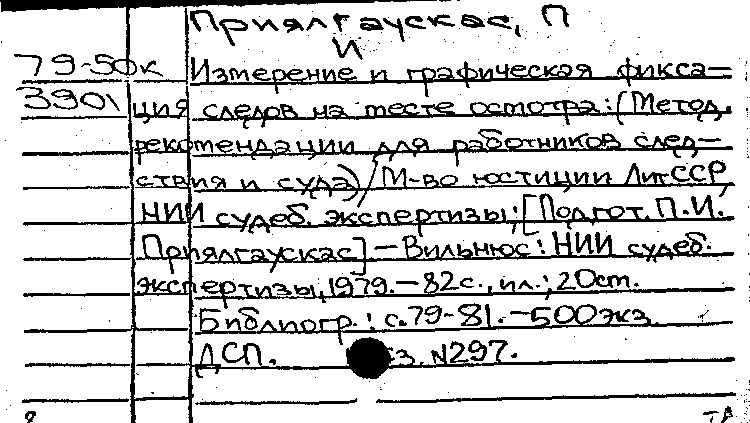 Приялгаускас, П
И
79-50к Измерение и графическая фикса-
3901 ция следов на месте осмотра: (Метод.
рекомендации для работников след-
ствия и суда) / М-во юстиции ЛитССР,
НИИ судеб. экспертизы; [Подгот. П.И.
Приялгаускас] - Вильнюс: НИИ судеб.
экспертизы, 1979. - 82 с., ил.; 20 см.
Библиогр.: с. 79-81. - 500 экз.
ДСП. №297.